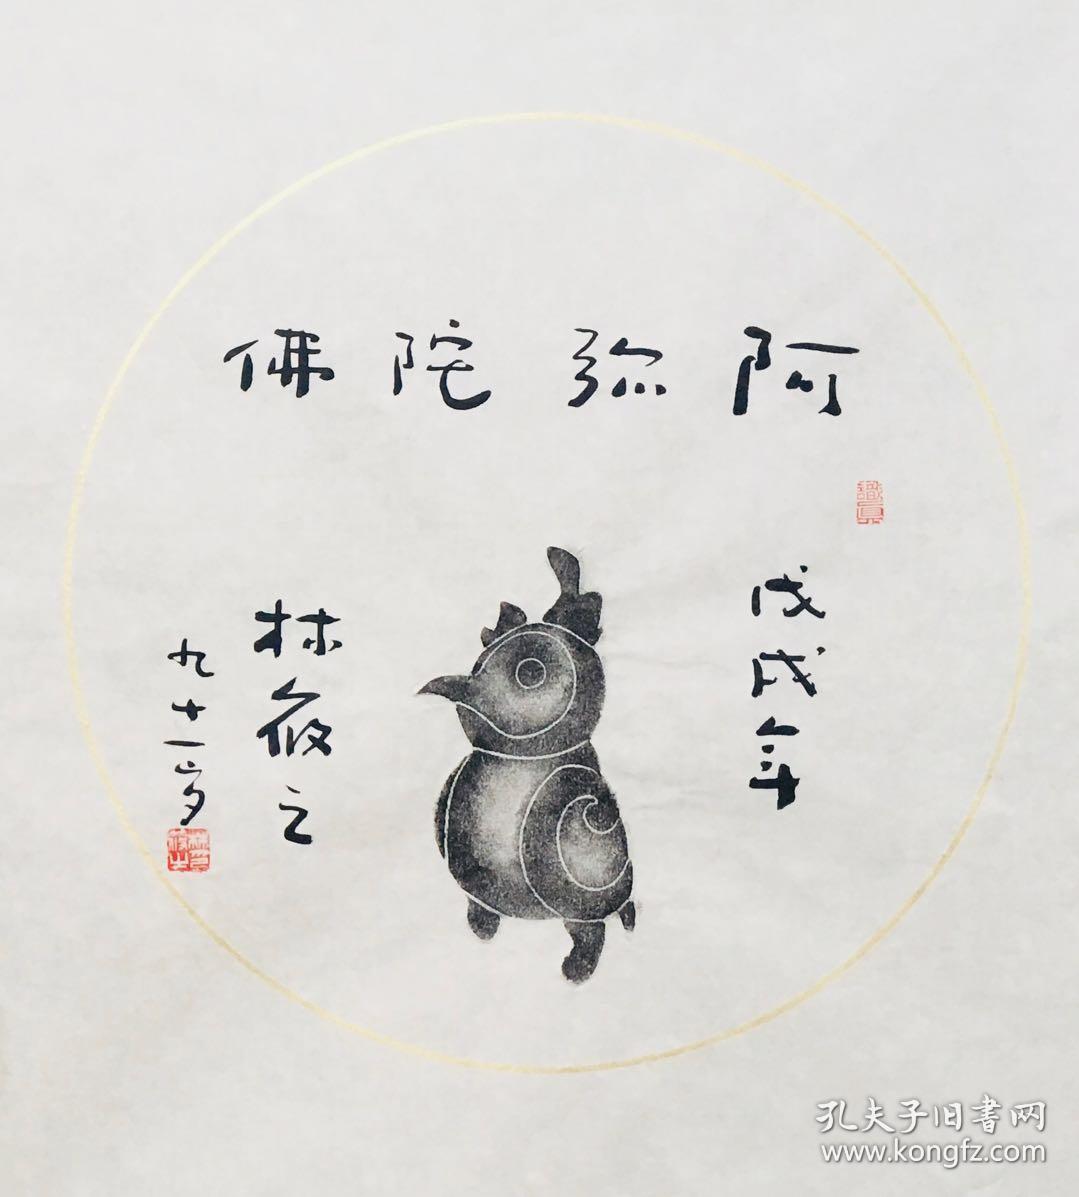 阿弥陀佛
戊戌年
林筱之
九十一岁
識真
林筱之
孔夫子旧書网
www.kongfz.com